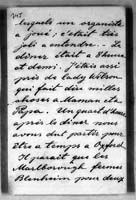 lesquels un organiste
a joué; c'était très
joli a entendre. Le
dîner était a 8 heures
et demi. J'étais assis
près de lady Wilson
qui fait dire milles
choses a Maman et a
Papa. Un quart d'heure
après le diner nous
avons dut partir pour
être a temps a Oxford
Il parait que les
Marlborough ferme
Blenheim pour deux